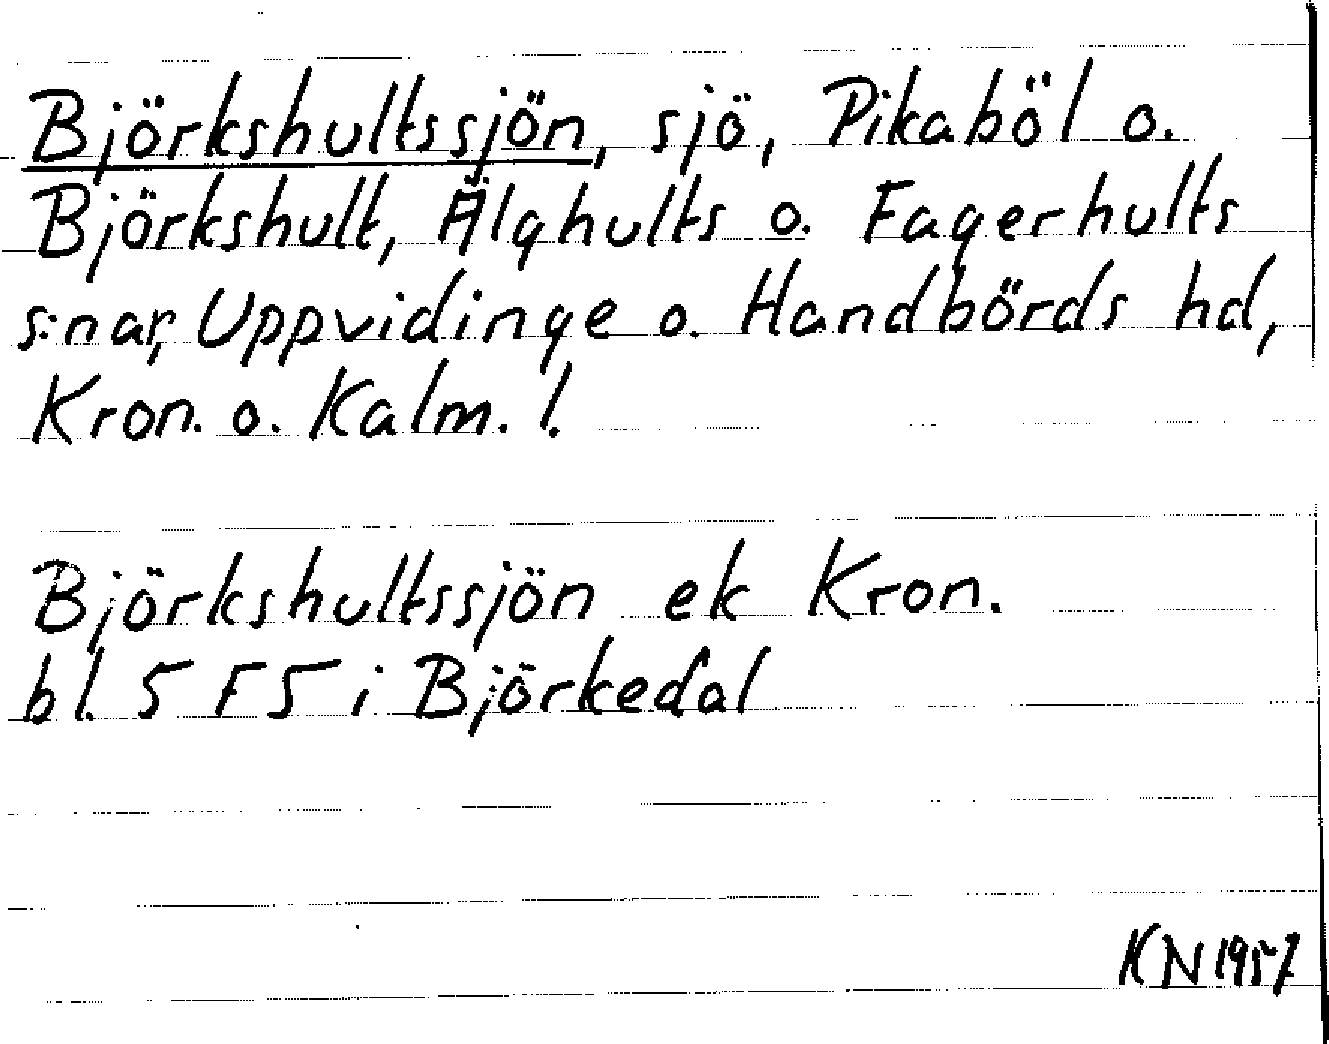 Björkshultssjön, sjö, Pikaböl o.
Björkshult, Älghults o. Fagerhults
s:nar, Uppvidinge o. Handbörds hd,
Kron. o. Kalm. l.
Björkshultssjön ek Kron.
bl. 5 F5 i Björkedal
KN 1957